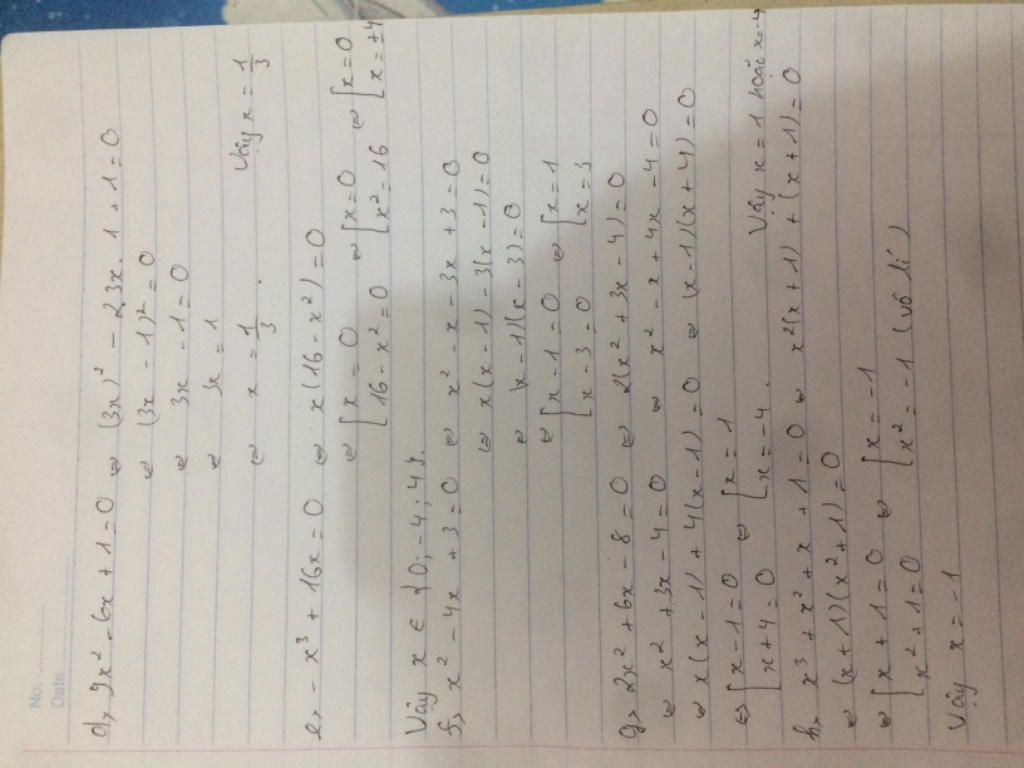 No. ............
Date. ............
d, 9x² - 6x + 1 = 0 ⇔ (3x)² - 2.3x.1 + 1 = 0
⇔ (3x - 1)² = 0
⇔ 3x - 1 = 0
⇔ 3x = 1
⇔ x = 1/3 . Vậy x = 1/3
e, - x³ + 16x = 0 ⇔ x(16 - x²) = 0
⇔ [x = 0 ⇔ [x = 0 ⇔ [x = 0
[16 - x² = 0 [x² = 16 [x = ±4
Vậy x ∈ {0; -4; 4}.
f, x² - 4x + 3 = 0 ⇔ x² - x - 3x + 3 = 0
⇔ x(x - 1) - 3(x - 1) = 0
⇔ (x - 1)(x - 3) = 0
⇔ [x - 1 = 0 ⇔ [x = 1
[x - 3 = 0 [x = 3
g, 2x² + 6x - 8 = 0 ⇔ 2(x² + 3x - 4) = 0
⇔ x² + 3x - 4 = 0 ⇔ x² - x + 4x - 4 = 0
⇔ x(x - 1) + 4(x - 1) = 0 ⇔ (x - 1)(x + 4) = 0
⇔ [x - 1 = 0 ⇔ [x = 1
[x + 4 = 0 [x = -4. Vậy x = 1 hoặc x = -4
h, x³ + x² + x + 1 = 0 ⇔ x²(x + 1) + (x + 1) = 0
⇔ (x + 1)(x² + 1) = 0
⇔ [x + 1 = 0 ⇔ [x = -1
[x² + 1 = 0 [x² = -1 (vô lí)
Vậy x = -1